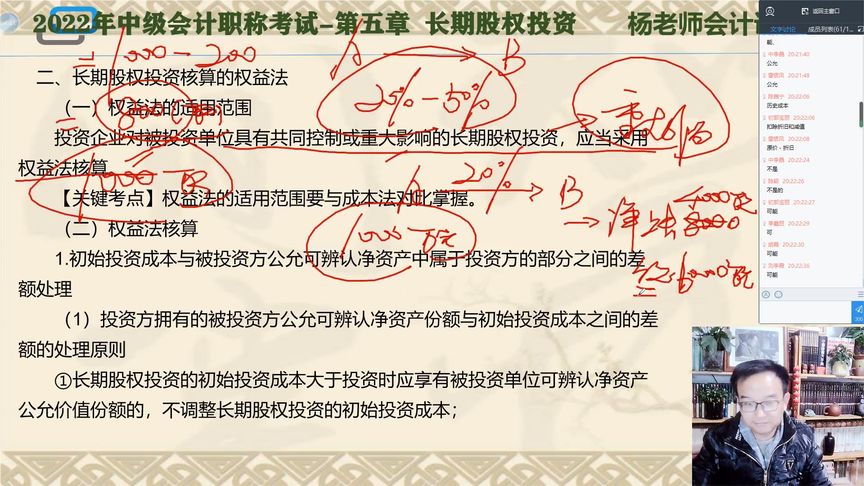 2022年中级会计职称考试-第五章 长期股权投资 杨老师会计
返回主窗口
文字讨论 成员列表(61/1...
1000-200
A B
二、长期股权投资核算的权益法
25%-50%
（一）权益法的适用范围
投资企业对被投资单位具有共同控制或重大影响的长期股权投资，应当采用
权益法核算
1000
20%
A B
【关键考点】权益法的适用范围要与成本法对比掌握。
（二）权益法核算
1000万元
1.初始投资成本与被投资方公允可辨认净资产中属于投资方的部分之间的差
额处理
（1）投资方拥有的被投资方公允可辨认净资产份额与初始投资成本之间的差
额的处理原则
①长期股权投资的初始投资成本大于投资时应享有被投资单位可辨认净资产
公允价值份额的，不调整长期股权投资的初始投资成本；
能、
20:21:40
公允
20:21:48
公允
20:22:06
历史成本
20:22:06
扣除折旧和减值
20:22:08
原价-折旧
20:22:24
不是
20:22:26
不是的
20:22:27
可能
20:22:29
可
20:22:30
可能
20:22:36
可能